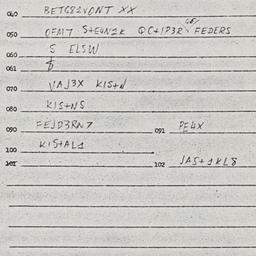 040 BETG82VDNT XX
050 OFAIT S+E4N2K QC+IP3R FEDERS
S ELSW
060
061
070 VAJ3X KIS+N
080 KIS+NS
090 FEJD3RN7 091 PE4X
KIS+AL1
100
101 102 JAS+1KL8